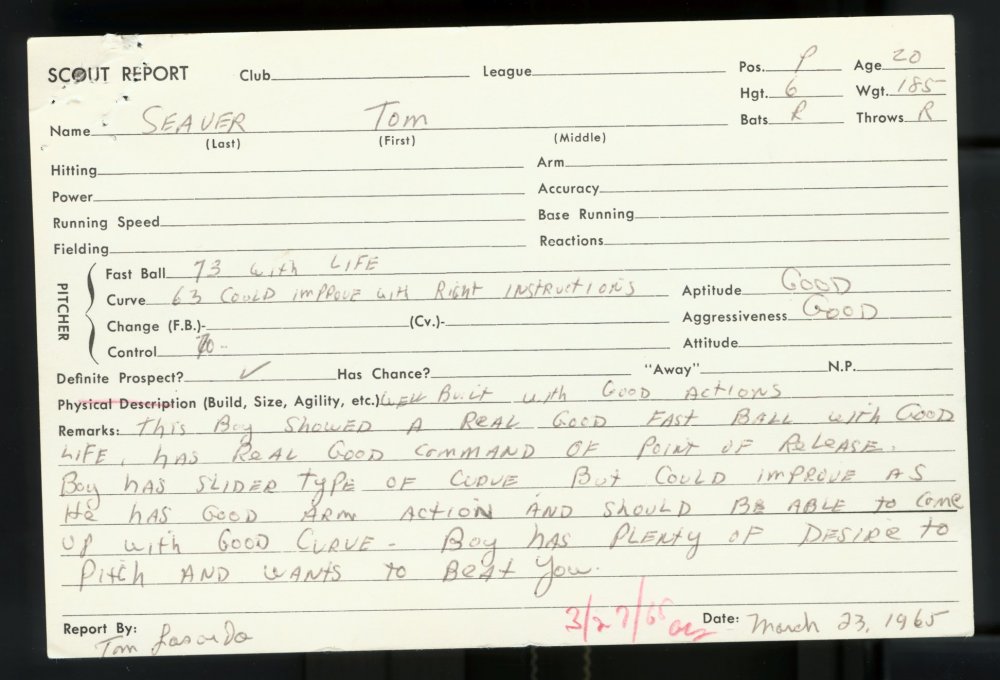 SCOUT REPORT Club League Pos. P Age 20
Hgt. 6 Wgt. 185
Name SEAVER Tom Bats R Throws R
(Last) (First) (Middle)
Hitting Arm
Power Accuracy
Running Speed Base Running
Fielding Reactions
PITCHER
Fast Ball 73 with LIFE
Curve 63 COULD IMPROVE with Right INSTRUCTIONS Aptitude GOOD
Change (F.B.)- (Cv.)- Aggressiveness GOOD
Control 70- Attitude
Definite Prospect? ✓ Has Chance? "Away" N.P.
Physical Description (Build, Size, Agility, etc.) WELL Built with GOOD ACTIONS
Remarks: This Boy SHOWED A REAL GOOD FAST BALL with GOOD
LIFE, hAS REAL GOOD COMMAND OF POINT OF RELEASE.
Boy hAS SLIDER TYPE OF CURVE But COULD IMPROVE AS
He hAS GOOD ARM ACTION AND SHOULD BE ABLE to COME
UP with GOOD CURVE - Boy hAS PLENTY OF DESIRE to
Pitch AND WANTS to BEAT You.
3/27/65
Report By: Tom Lasorda Date: March 23, 1965